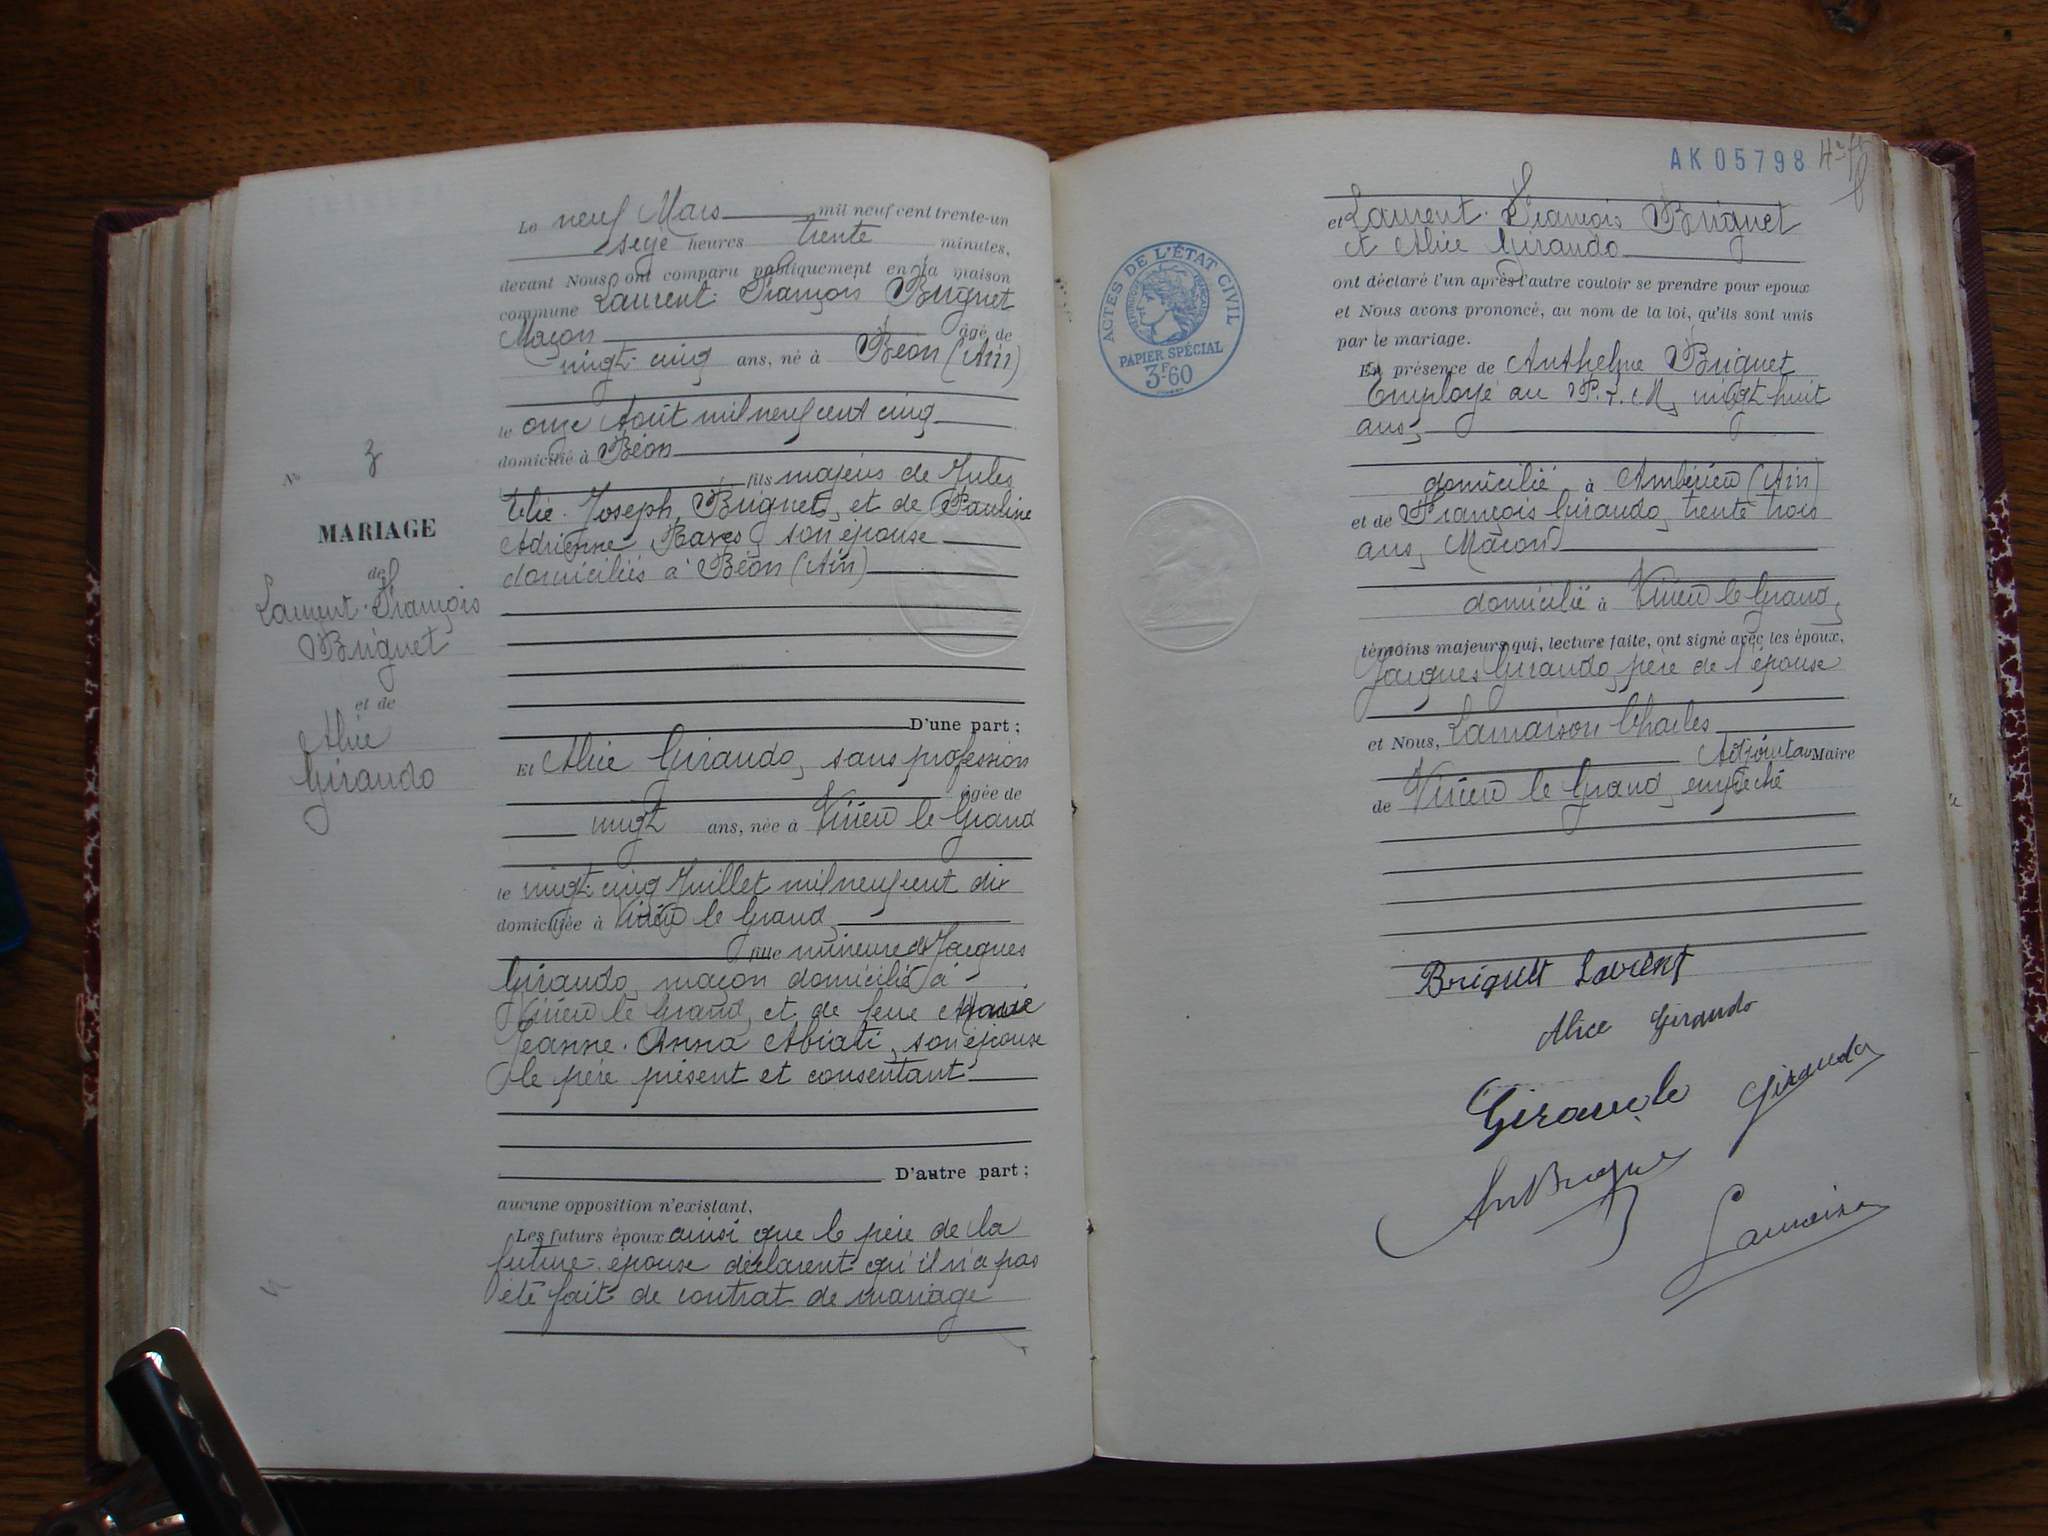 Nº 3
MARIAGE
de
Laurent-François
Briguet
et de
Alice
Giraudo
Le neuf Mars mil neuf cent trente-un
seize heures trente minutes,
devant Nous ont comparu publiquement en la maison
commune Laurent-François Briguet
Maçon âgé de
vingt-cinq ans, né à Béon (Ain)
le onze Août mil neuf cent cinq
domicilié à Béon
fils majeur de Jules
Elie-Joseph Briguet, et de Pauline
Adrienne son épouse
domiciliés à Béon (Ain)
D'une part ;
Et Alice Giraudo, sans profession
âgée de
vingt ans, née à Virieu le Grand
le vingt-cinq Juillet mil neuf cent dix
domiciliée à Virieu le Grand,
fille mineure de Jacques
Giraudo, maçon domicilié à
Virieu le Grand, et de feue
Jeanne-Anna Abiati, son épouse
le père présent et consentant
D'autre part ;
aucune opposition n'existant,
Les futurs époux ainsi que le père de la
future épouse déclarent qu'il n'a pas
été fait de contrat de mariage
AK 05798
ACTES DE L'ÉTAT CIVIL
PAPIER SPÉCIAL
3F60
et Laurent-François Briguet
et Alice Giraudo
ont déclaré l'un après l'autre vouloir se prendre pour époux
et Nous avons prononcé, au nom de la loi, qu'ils sont unis
par le mariage.
En présence de Anthelme Briguet
Employé au P.L.M, vingt huit
ans,
domicilié à Ambérieu (Ain)
et de François Giraudo, trente trois
ans, Maçon
domicilié à Virieu le Grand,
témoins majeurs qui, lecture faite, ont signé avec les époux,
Jacques Giraudo, père de l'épouse
et Nous, Lamaison Charles
Adjoint au Maire
de Virieu le Grand, empêché
Briguet Laurent
Alice Giraudo
Giraudo Giraudo